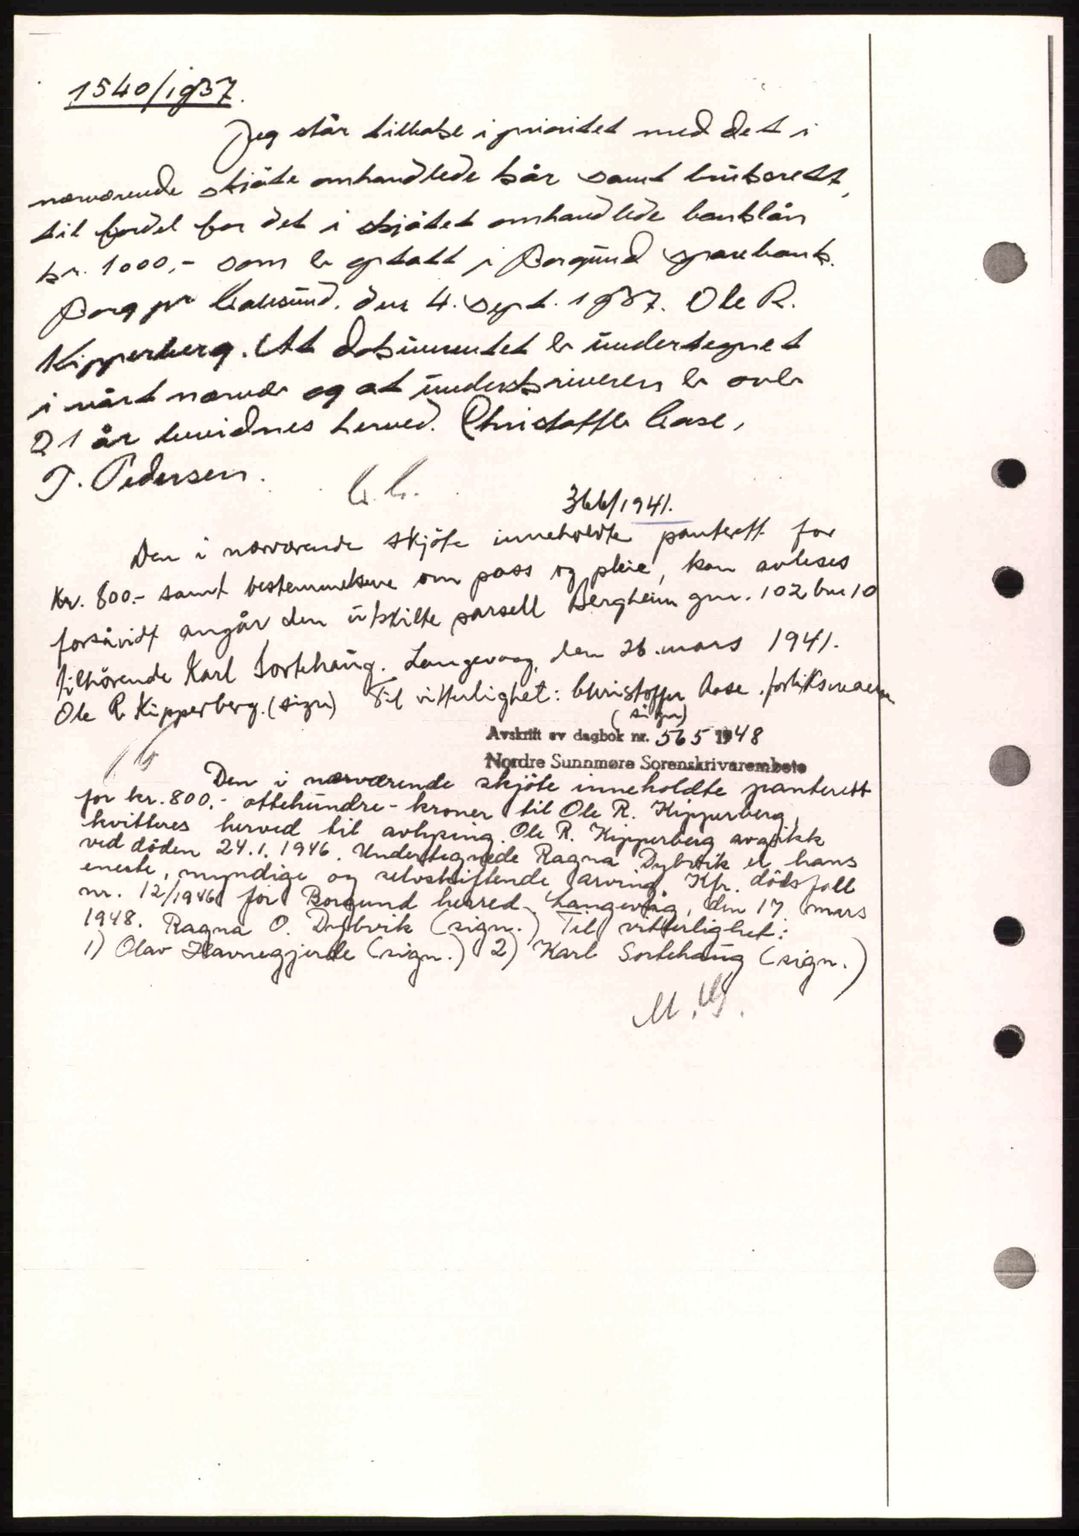 1540/1937.
Jeg står tilbake i prioritet med det i
nærværende skjøte omhandlede kår samt bruksrett,
til fordel for det i skjøtet omhandlede banklån
kr. 1000,- som er optatt i Borgund sparebank.
Borg pr Aalesund, den 4. sept. 1937. Ole R.
Kipperberg. At dokumentet er undertegnet
i vårt nærvær og at underskriveren er over
21 år bevidnes herved. Christoffer Aase,
T. Pedersen.
366/1941.
Den i nærværende skjöte inneholdte panterett for
Kr. 800.- samt bestemmelsene om pass og pleie, kan avleses
forsåvidt angår den utskilte parsell Bergheim gnr. 102 bnr 10
tilhörende Karl Sortehaug. Langevaag, den 26. mars 1941.
Ole R. Kipperberg. (sign) Til vitterlighet: Christoffer Aase, forliksmann
(sign)
Avskrift av dagbok nr. 565 1948
Nordre Sunnmøre Sorenskrivarembete
Den i nærværende skjöte inneholdte panterett
for kr. 800,- ottehundre - kroner til Ole R. Kipperberg,
kvitteres herved til avlysing. Ole R. Kipperberg avgikk
ved döden 24.1.1946. Undertegnede Ragna Dybvik er hans
eneste, myndige og selvskiftende arving. Kfr. dödsfall
nr. 12/1946 for Borgund herred. Langevåg, den 17. mars
1948. Ragna O. Dybvik (sign.) Til vitterlighet:
1) Olav Havnegjerde (sign.) 2) Karl Sortehaug (sign.)